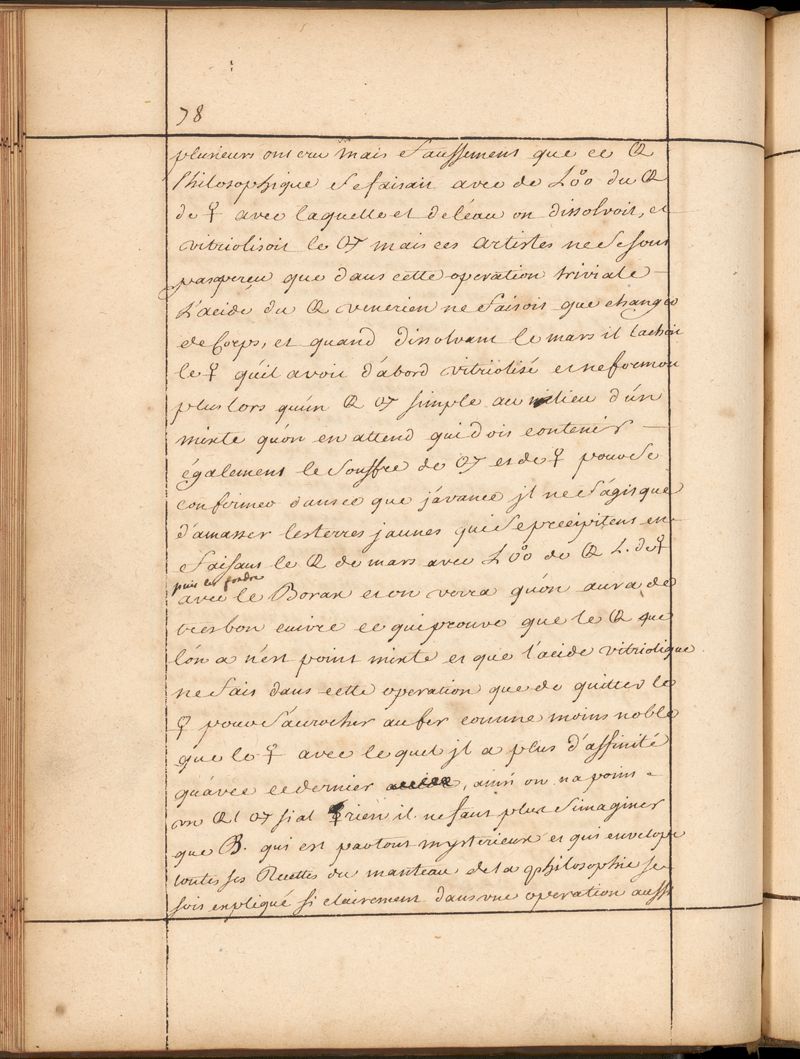 78
plusieurs ont cru mais faussement que ce 🜖
Philosophique se faisait avec de L'oo du 🜖
de ♀ avec laquelle et de léau on dissolvoit, et
vitriolisoit le ♂ mais ces artistes ne se sont
pas aperçu que dans cette operation triviale —
L'acide du 🜖 venerien ne faisois que changer
de Corps, et quand dissolvant le mars il lachoit
le ♀ qu'il avoit d'abord vitriolisé et ne formoit
plus lors qu'un 🜖 ♂ simple au milieu d'un
mixte qu'on en attend qui dois contenir —
également le souffre de ♂ et de ♀ pour se
confirmer dans ce que j'avance jl ne s'agis que
d'amasser les terres jaunes qui se precipitent en
faisant le 🜖 de mars avec L'oo de 🜖 L. de ♀
puis les fondre
avec le Borax et on verra qu'on aura de
tres bon cuivre ce qui prouve que le 🜖 que
l'on a n'est point mixte et que l'acide vitriolique
ne fais dans cette operation que de quitter le
♀ pour s'acrocher au fer comme moins noble
que le ♀ avec le quel jl a plus d'affinité
qu'avec ce dernier , ainsi on na point
un 🜖l ♂ sial ♀rien il ne faut plus simaginer
que B. qui est partout mysterieux et qui envelope
toutes ses Recettes du manteau de la philosophie se
sois expliqué si clairement dans une operation aussi